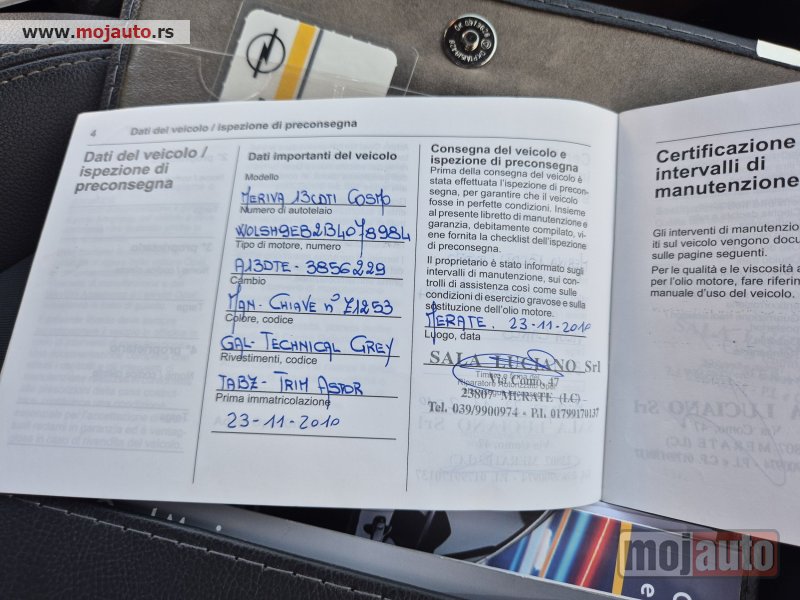 www.mojauto.rs
4 Dati del veicolo / ispezione di preconsegna
Dati del veicolo /
ispezione di
preconsegna
Dati importanti del veicolo
Modello
MERIVA 13CDTI COSMO
Numero di autotelaio
WOLSH9EB2B4078984
Tipo di motore, numero
A13DTE - 3856229
Cambio
MAN - CHIAVE n° Z1253
Colore, codice
GAL - TECHNICAL GREY
Rivestimenti, codice
TABZ - TRIM ASTOR
Prima immatricolazione
23-11-2010
Consegna del veicolo e
ispezione di preconsegna
Prima della consegna del veicolo è
stata effettuata l'ispezione di precon-
segna, per garantire che il veicolo
fosse in perfette condizioni. Insieme
al presente libretto di manutenzione e
garanzia, debitamente compilato, vie-
ne fornita la checklist dell'ispezione
di preconsegna.
Il proprietario è stato informato sugli
intervalli di manutenzione, sui con-
trolli di assistenza così come sulle
condizioni di esercizio gravose e sulla
sostituzione dell'olio motore.
MERATE. 23-11-2010
Luogo, data
SALA LUCIANO Srl
Timbro e firma del
Riparatore Autorizzato Opel
Via Como, 47
23807 MERATE (LC)
Tel. 039/9900974 - P.I. 01799170137
Certificazione
intervalli di
manutenzione
Gli interventi di manutenzio
iti sul veicolo vengono docu
sulle pagine seguenti.
Per le qualità e le viscosità a
per l'olio motore, fare riferim
manuale d'uso del veicolo.
mojauto